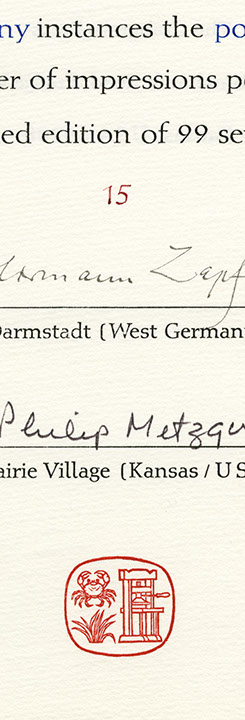 ny instances the po
er of impressions p
ed edition of 99 se
15
Hermann Zapf
Darmstadt (West German
Philip Metzger
airie Village (Kansas / US